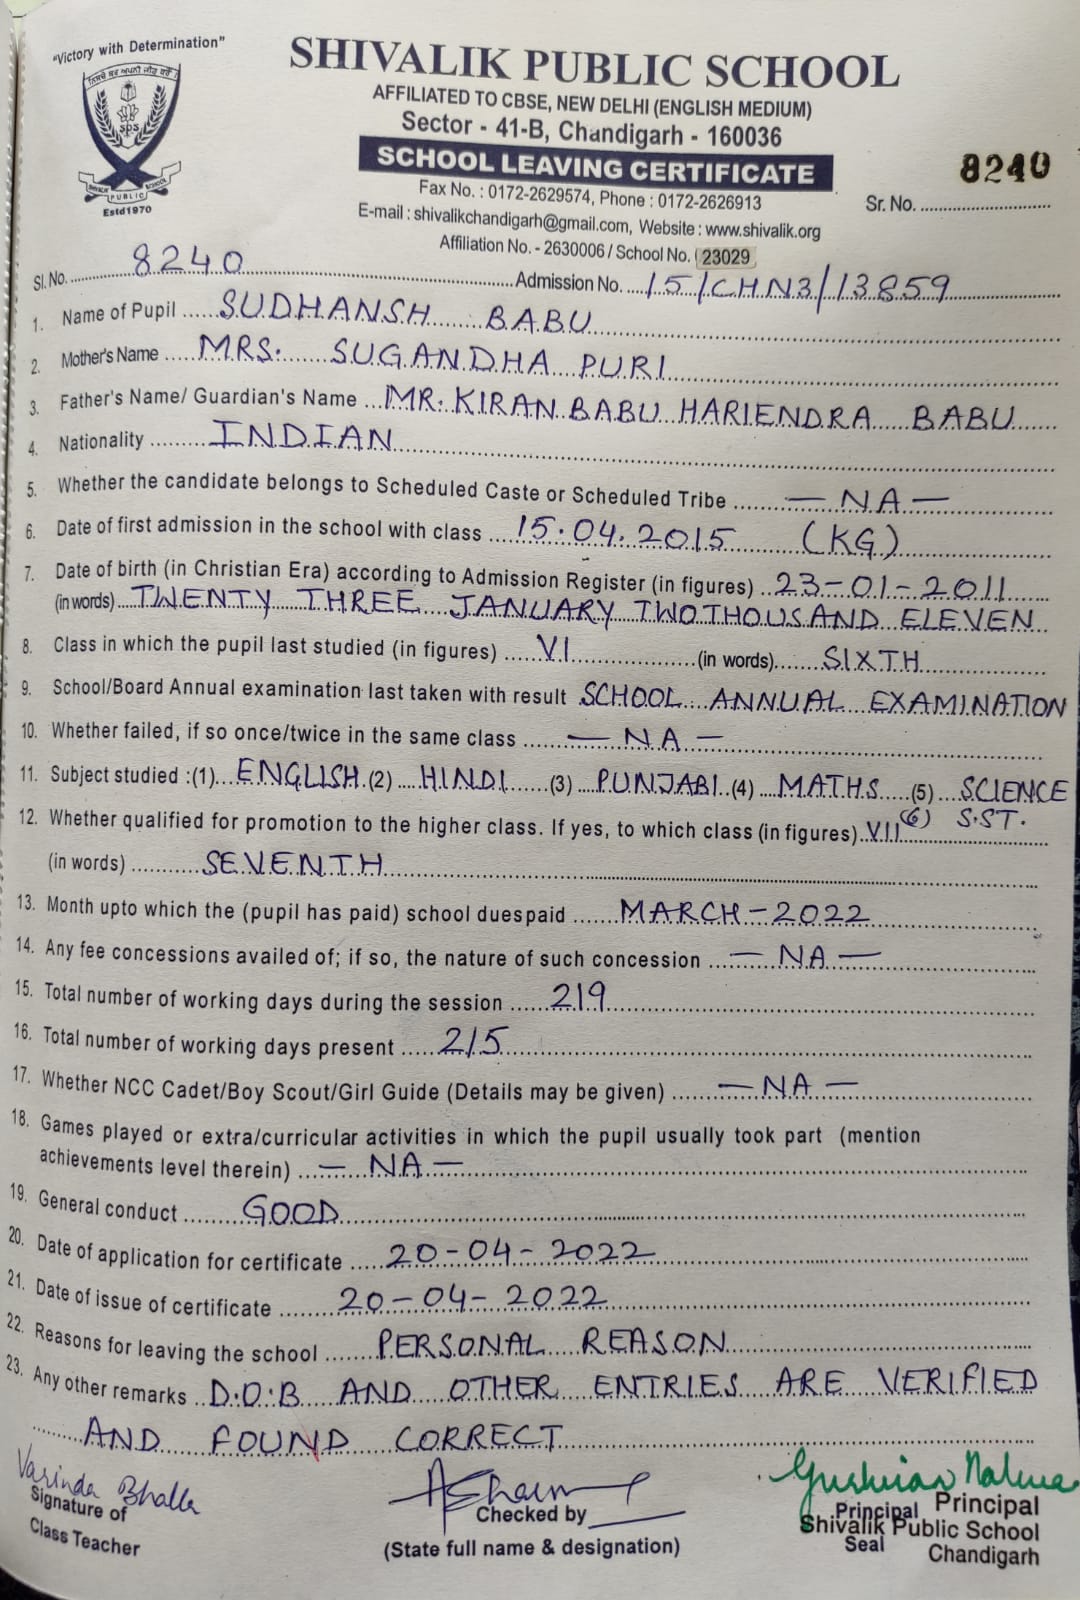 "Victory with Determination"
SPS
SHIVALIK PUBLIC SCHOOL
Estd1970
SHIVALIK PUBLIC SCHOOL
AFFILIATED TO CBSE, NEW DELHI (ENGLISH MEDIUM)
Sector - 41-B, Chandigarh - 160036
SCHOOL LEAVING CERTIFICATE
Fax No. : 0172-2629574, Phone : 0172-2626913
E-mail : shivalikchandigarh@gmail.com, Website : www.shivalik.org
Affiliation No. - 2630006 / School No. 23029
8240
Sr. No. ..........
Sl. No. 8240 Admission No. 15/CHN3/13859
1. Name of Pupil SUDHANSH BABU
2. Mother's Name MRS. SUGANDHA PURI
3. Father's Name/ Guardian's Name MR. KIRAN BABU HARIENDRA BABU
4. Nationality INDIAN
5. Whether the candidate belongs to Scheduled Caste or Scheduled Tribe — NA —
6. Date of first admission in the school with class 15.04.2015 (KG)
7. Date of birth (in Christian Era) according to Admission Register (in figures) 23-01-2011
(in words) TWENTY THREE JANUARY TWO THOUSAND ELEVEN
8. Class in which the pupil last studied (in figures) VI (in words) SIXTH
9. School/Board Annual examination last taken with result SCHOOL ANNUAL EXAMINATION
10. Whether failed, if so once/twice in the same class — NA —
11. Subject studied :(1) ENGLISH (2) HINDI (3) PUNJABI (4) MATHS (5) SCIENCE
(6) S.ST.
12. Whether qualified for promotion to the higher class. If yes, to which class (in figures) VII
(in words) SEVENTH
13. Month upto which the (pupil has paid) school duespaid MARCH-2022
14. Any fee concessions availed of; if so, the nature of such concession — NA —
15. Total number of working days during the session 219
16. Total number of working days present 215
17. Whether NCC Cadet/Boy Scout/Girl Guide (Details may be given) — NA —
18. Games played or extra/curricular activities in which the pupil usually took part (mention
achievements level therein) — NA —
19. General conduct GOOD
20. Date of application for certificate 20-04-2022
21. Date of issue of certificate 20-04-2022
22. Reasons for leaving the school PERSONAL REASON
23. Any other remarks D.O.B AND OTHER ENTRIES ARE VERIFIED
AND FOUND CORRECT
Varinda Bhalla
Signature of
Class Teacher
Checked by
(State full name & designation)
Principal
Seal
Principal
Shivalik Public School
Chandigarh